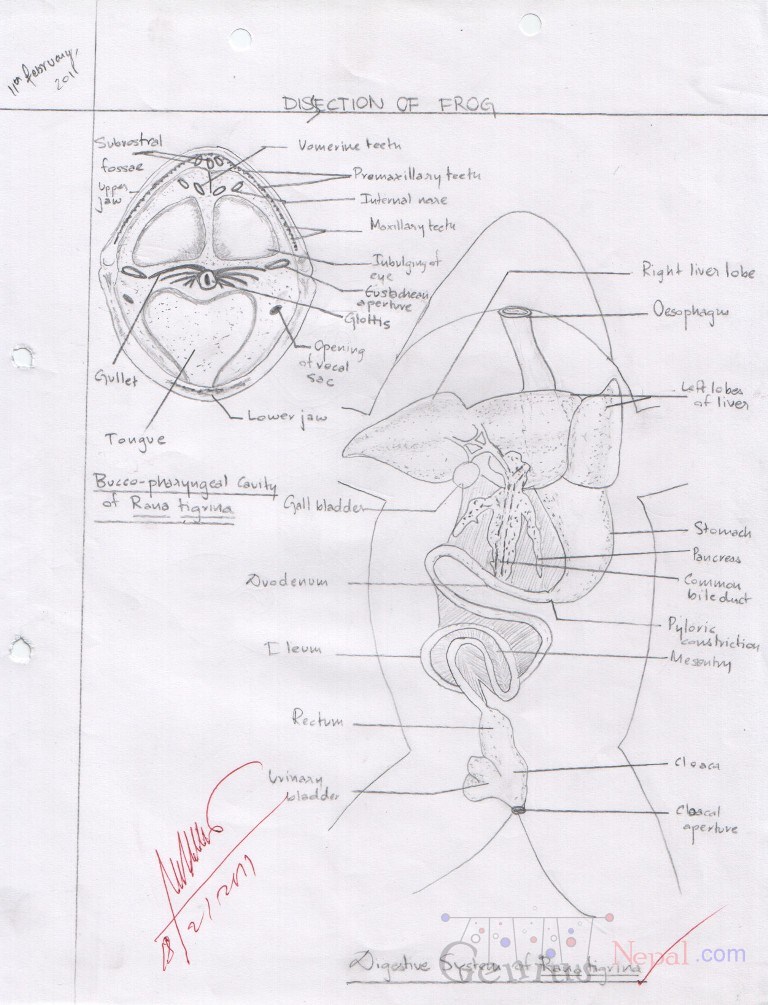 11th February,
2011
DISSECTION OF FROG
Subrostral
fossae
Upper
jaw
Vomerine teeth
Premaxillary teeth
Internal nare
Maxillary teeth
Inbulging of
eye
Eustachean
aperture
Glottis
Opening
of vocal
sac
Gullet
Tongue
Lower jaw
Bucco-pharyngeal cavity
of Rana tigrina
Right liver lobe
Oesophagus
Left lobes
of liver
Gall bladder
Stomach
Pancreas
Common
bile duct
Duodenum
Pyloric
constriction
Mesentry
Ileum
Rectum
Cloaca
Urinary
bladder
Cloacal
aperture
18/2/2011
Digestive System of Rana tigrina
Genius Nepal.com